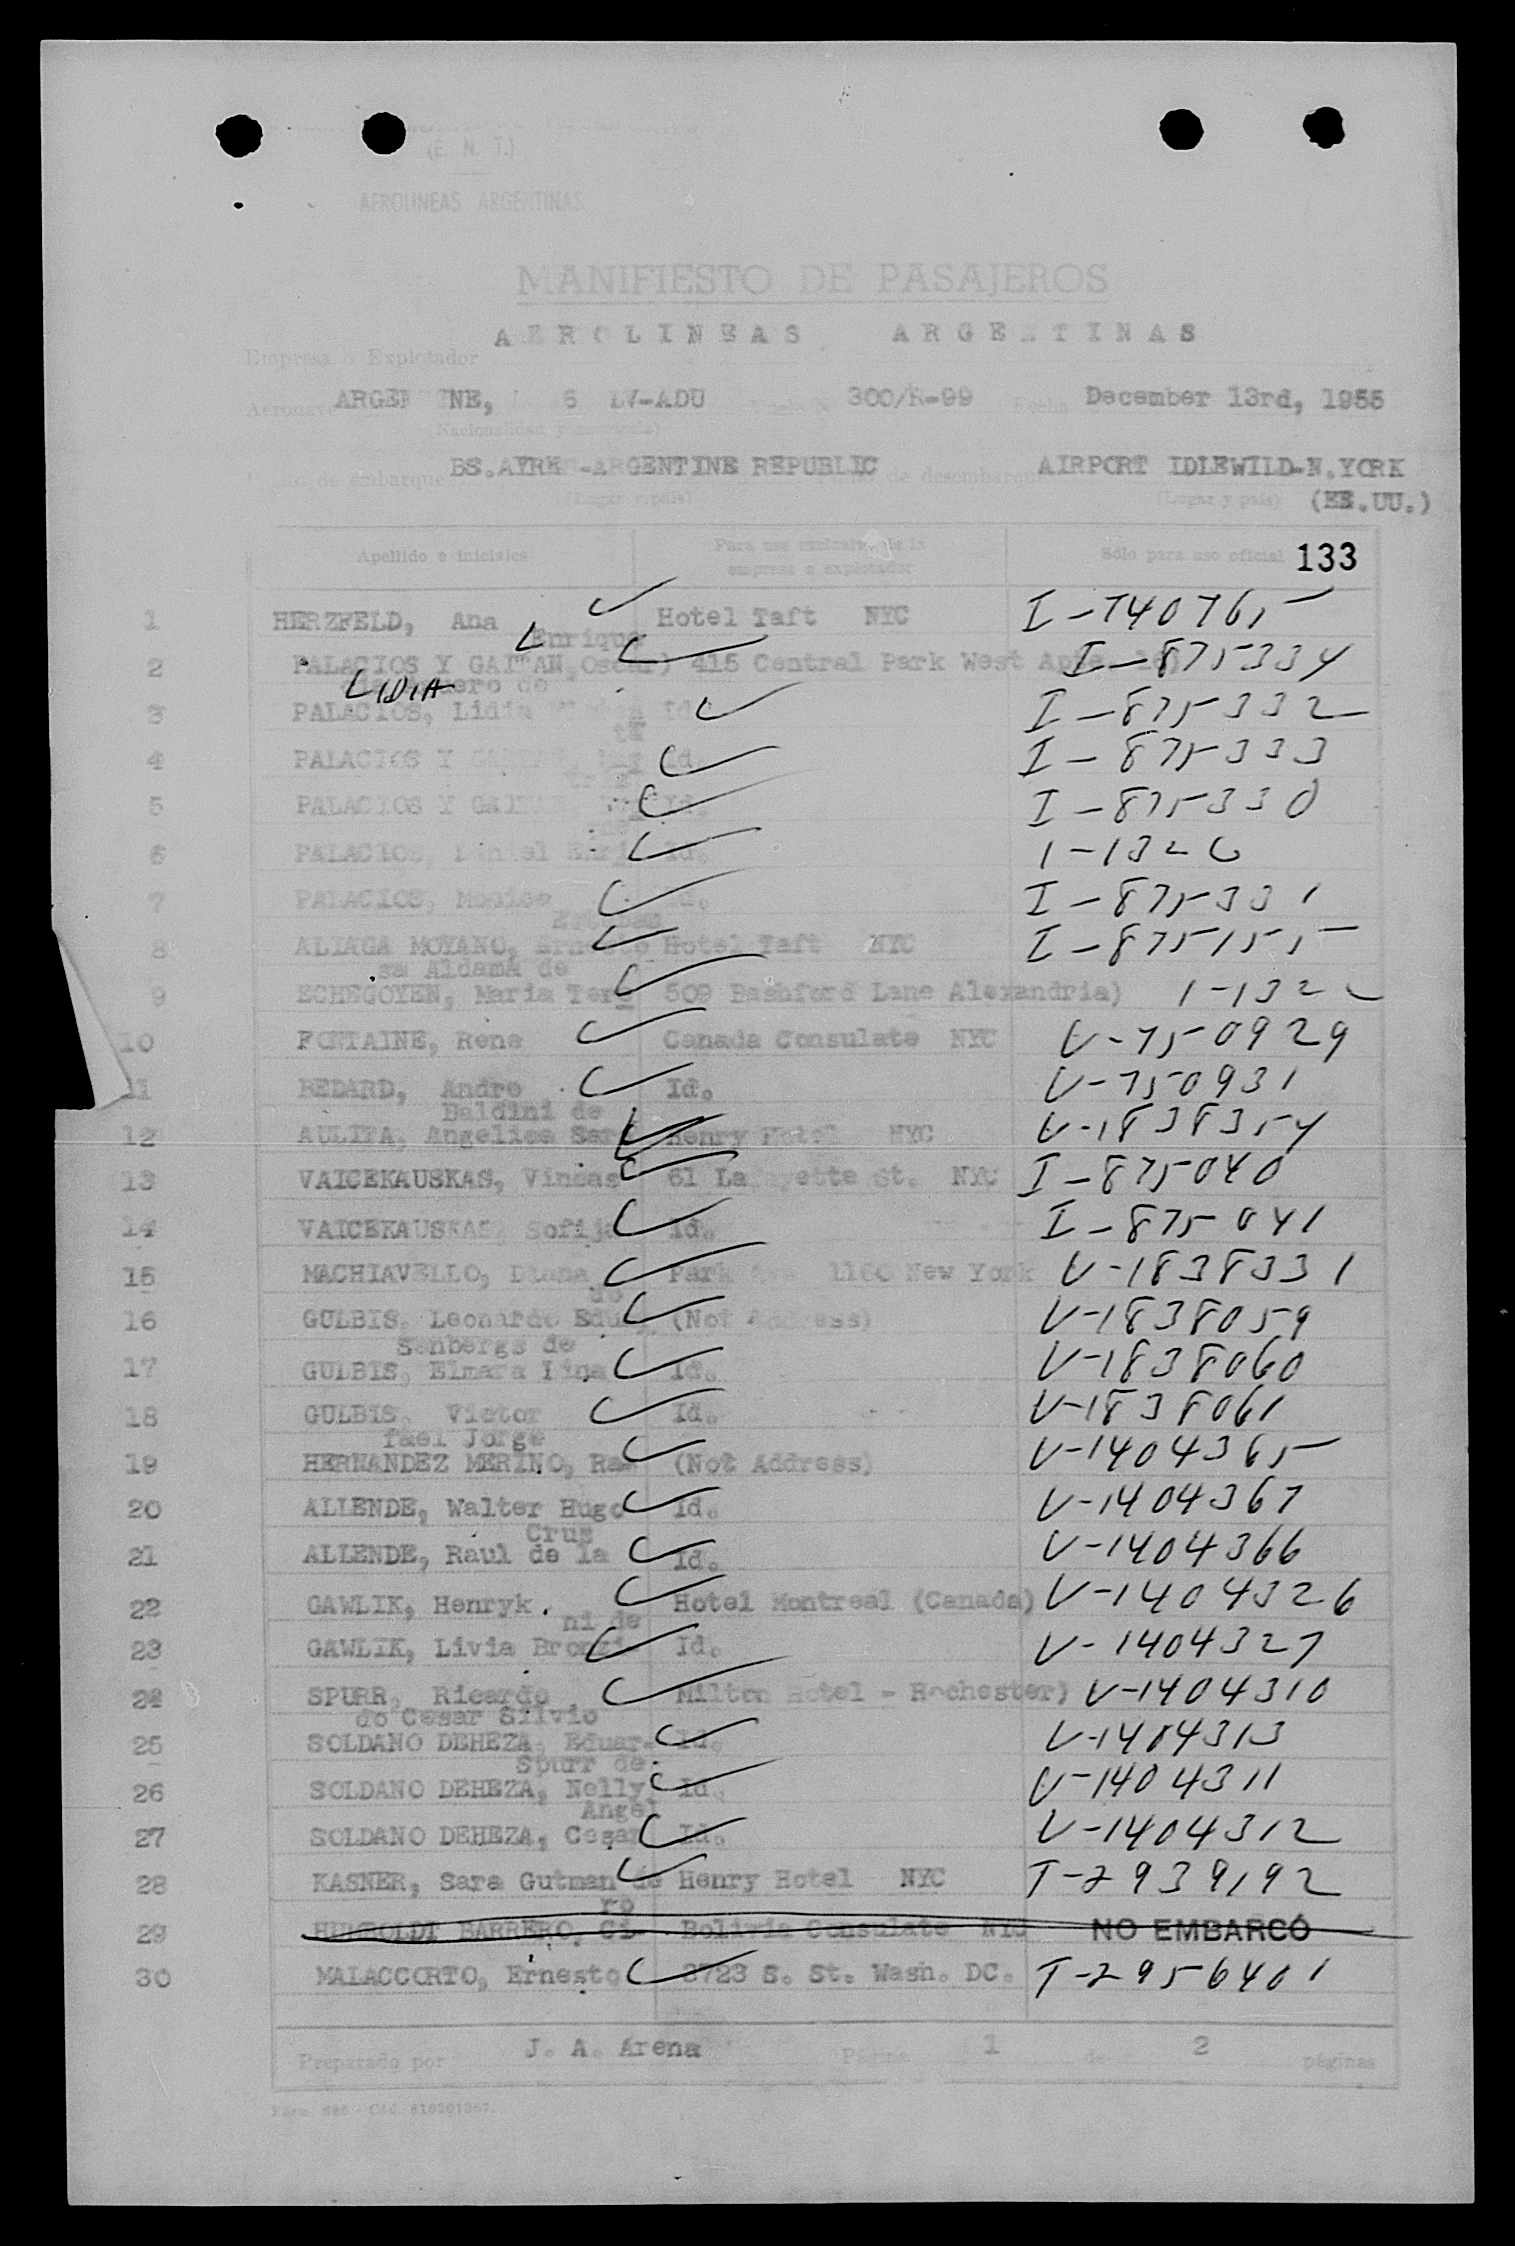 (E. N. T.)
AEROLINEAS ARGENTINAS
MANIFIESTO DE PASAJEROS
AEROLINEAS ARGENTINAS
Empresa o Explotador
Aeronave ARGEN NE, 6 LV-ADU 300/R-99 Fecha December 13rd, 1955
(Nacionalidad y matrícula)
de embarque BS.AYRES-ARGENTINE REPUBLIC de desembarque AIRPORT IDLEWILD-N.YORK
(Lugar y país) (Lugar y país) (EE.UU.)
Apellido e iniciales Para uso exclusivo de la empresa o explotador Sólo para uso oficial 133
1 HERZFELD, Ana Hotel Taft NYC I-740765
Enrique
2 PALACIOS Y GAITAN, Oscar) 415 Central Park West I-875334
LIDIA ero de
3 PALACIOS, Lidia Id I-875332
4 PALACIOS Y Id I-875333
5 PALACIOS Y GAITAN, Id. I-875330
6 PALACIOS, Daniel Enri Id. 1-1326
7 PALACIOS, Monica Id. I-875331
Esteban
8 ALIAGA MOYANO, Ernesto Hotel Taft NYC I-875155
sa Aldama de
9 ECHEGOYEN, Maria Tere 509 Bashford Lane Alexandria) 1-1322
10 FONTAINE, Rene Canada Consulate NYC V-750929
11 BEDARD, Andre Id. V-750931
Baldini de
12 AULITA, Angelica Sara Henry Hotel NYC V-1838354
13 VAICEKAUSKAS, Vincas 61 Lafayette St. NYC I-875040
14 VAICEKAUSKAS, Sofija Id. I-875041
15 MACHIAVELLO, Diana Park Ave 1160 New York V-1838331
do
16 GULBIS, Leonardo Edua (Not Address) V-1838059
Senbergs de
17 GULBIS, Elmara Lina Id. V-1838060
18 GULBIS, Victor Id. V-1838061
fael Jorge
19 HERNANDEZ MERINO, Ra (Not Address) V-1404365
20 ALLENDE, Walter Hugo Id. V-1404367
Cruz
21 ALLENDE, Raul de la Id. V-1404366
22 GAWLIK, Henryk. Hotel Montreal (Canada) V-1404326
ni de
23 GAWLIK, Livia Bronzi Id. V-1404327
24 SPURR, Ricardo Milton Hotel - Rochester) V-1404310
do Cesar Silvio
25 SOLDANO DEHEZA, Eduar- Id. V-1404313
Spurr de
26 SOLDANO DEHEZA, Nelly Id. V-1404311
Angel
27 SOLDANO DEHEZA, Cesar Id. V-1404312
28 KASNER, Sara Gutman de Henry Hotel NYC T-2939192
ro
29 HUMBOLDT BARRERO, Ci- Bolivia Consulate NYC NO EMBARCÓ
30 MALACCORTO, Ernesto 3723 S. St. Wash. DC. T-2956401
Preparado por J. A. Arena Página 1 de 2 páginas